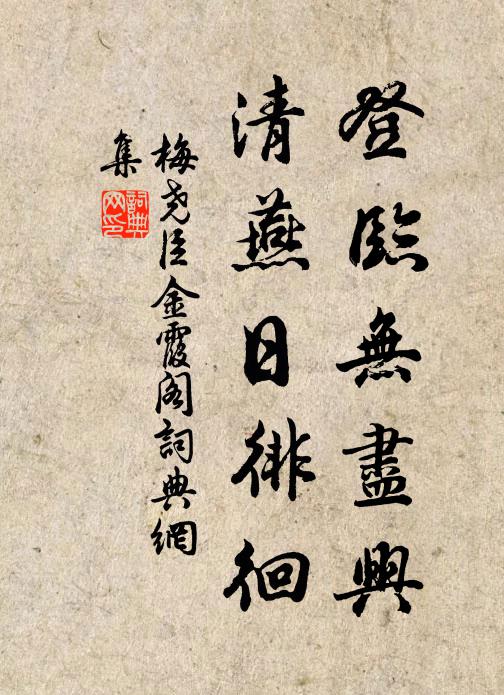 登臨無盡興
清燕日徘徊
梅堯臣金霞阁詞典網
集
詞典
网印